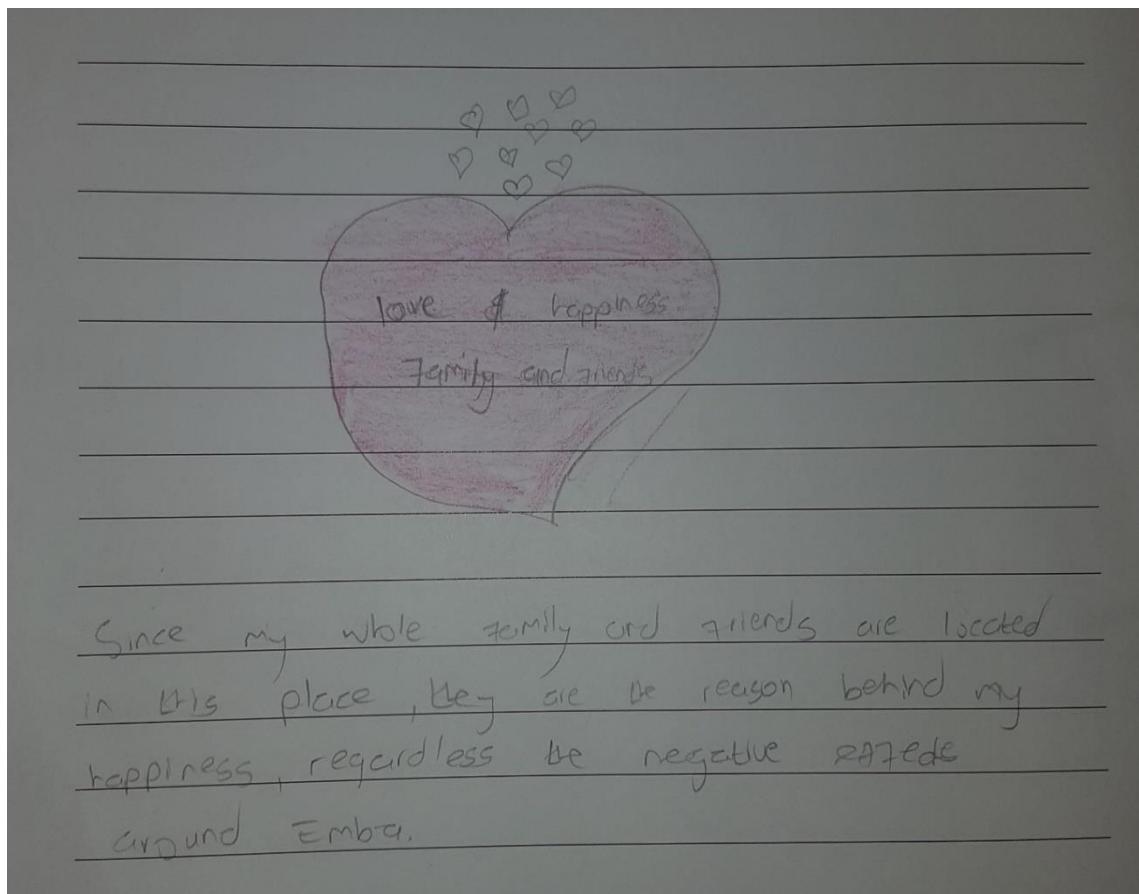 love & happiness
Family and Friends
Since my whole Family and Friends are located
in this place, they are the reason behind my
happiness, regardless the negative
around Emba.